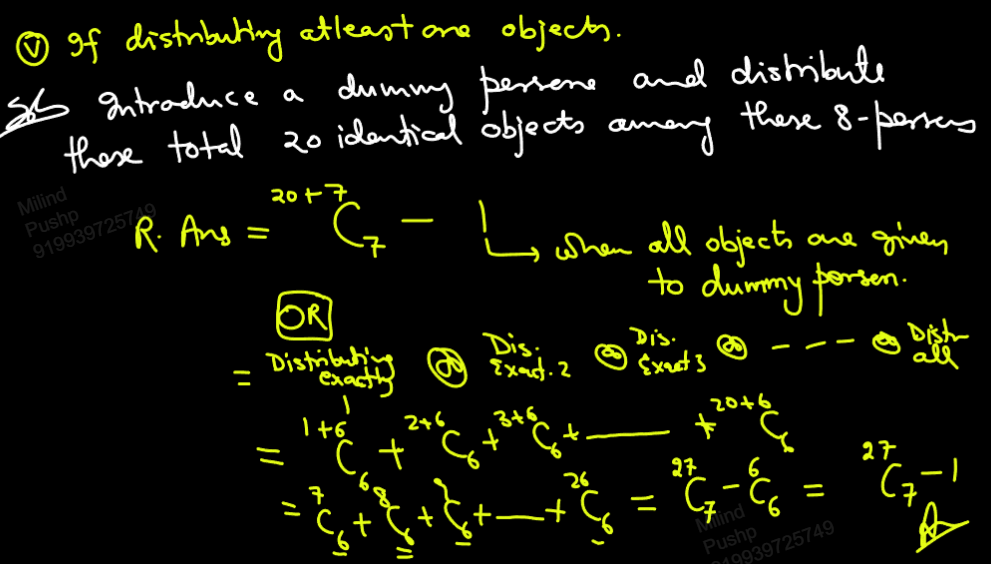 (v) If distributing atleast one objects.
Introduce a dummy persone and distribute
these total 20 identical objects among these 8-persons
R. Ans = ²⁰⁺⁷C₇ - 1 → when all objects are given
to dummy person.
OR
= Distributing exactly 1 or Dis. Exact. 2 or Dis. Exact 3 or ---- or Distr all
= ¹⁺⁶C₆ + ²⁺⁶C₆ + ³⁺⁶C₆ + —— + ²⁰⁺⁶C₆
= ⁷C₆ + ⁸C₆ + ⁹C₆ + — + ²⁶C₆ = ²⁷C₇ - ⁶C₆ = ²⁷C₇ - 1
Milind
Pushp
919939725749
Milind
Pushp
919939725749